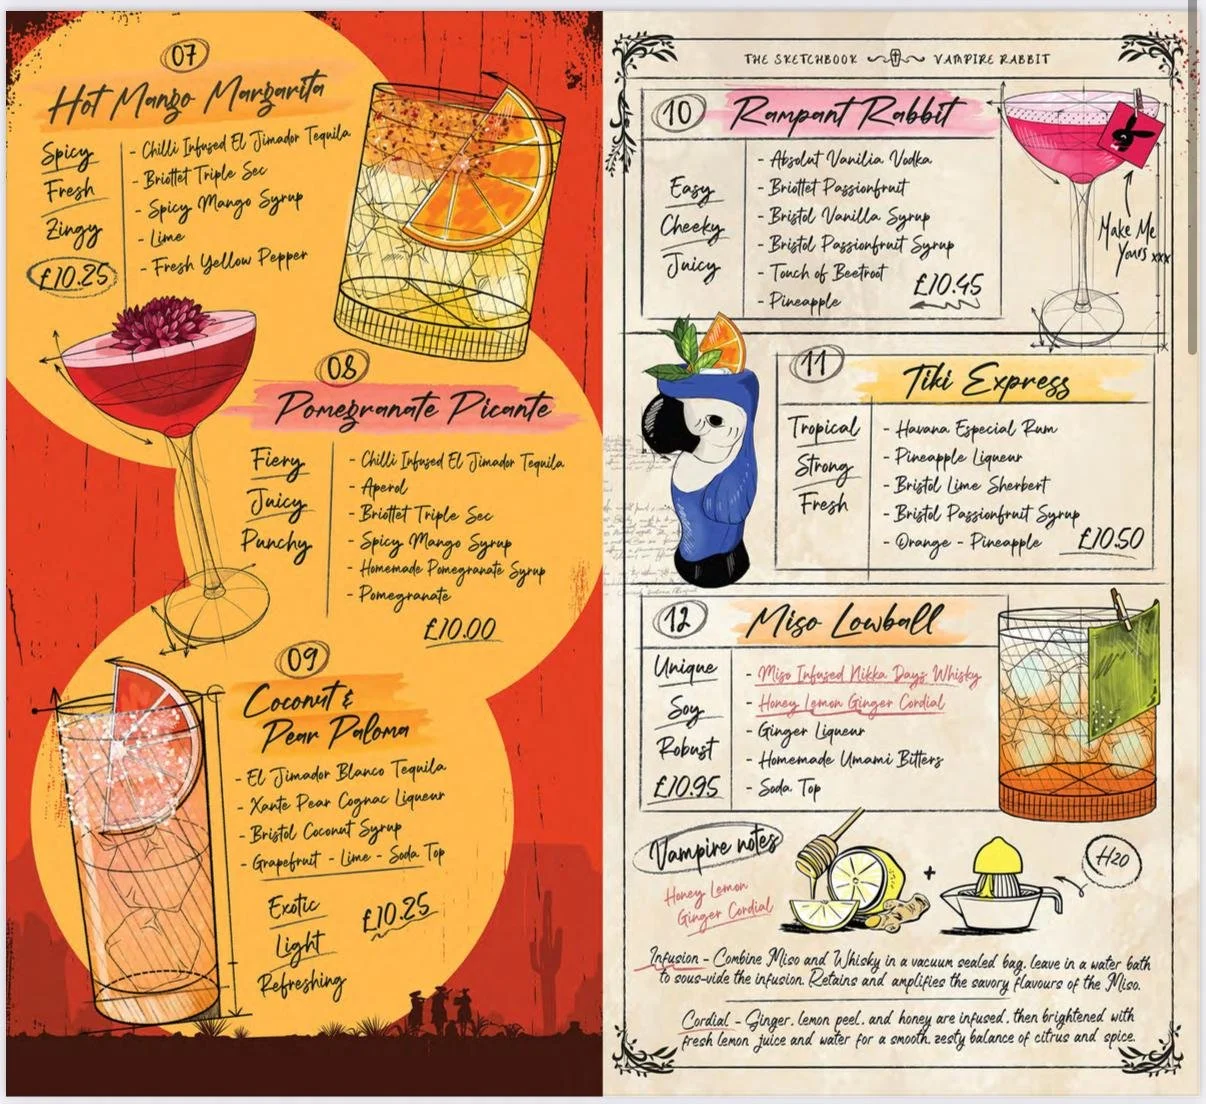 07
Hot Mango Margarita
Spicy
Fresh
Zingy
£10.25
- Chilli Infused El Jimador Tequila
- Briottet Triple Sec
- Spicy Mango Syrup
- Lime
- Fresh Yellow Pepper
08
Pomegranate Picante
Fiery
Juicy
Punchy
- Chilli Infused El Jimador Tequila
- Aperol
- Briottet Triple Sec
- Spicy Mango Syrup
- Homemade Pomegranate Syrup
- Pomegranate
£10.00
09
Coconut &
Pear Paloma
- El Jimador Blanco Tequila
- Xante Pear Cognac Liqueur
- Bristol Coconut Syrup
- Grapefruit - Lime - Soda Top
Exotic
Light
Refreshing
£10.25
THE SKETCHBOOK VAMPIRE RABBIT
10
Rampant Rabbit
Easy
Cheeky
Juicy
- Absolut Vanilia Vodka
- Briottet Passionfruit
- Bristol Vanilla Syrup
- Bristol Passionfruit Syrup
- Touch of Beetroot
- Pineapple
£10.45
Make Me
Yours xxx
11
Tiki Express
Tropical
Strong
Fresh
- Havana Especial Rum
- Pineapple Liqueur
- Bristol Lime Sherbert
- Bristol Passionfruit Syrup
- Orange - Pineapple
£10.50
12
Miso Lowball
Unique
Soy
Robust
£10.95
- Miso Infused Nikka Days Whisky
- Honey Lemon Ginger Cordial
- Ginger Liqueur
- Homemade Umami Bitters
- Soda Top
Vampire notes
Honey Lemon
Ginger Cordial
+
H20
Infusion - Combine Miso and Whisky in a vacuum sealed bag, leave in a water bath
to sous-vide the infusion. Retains and amplifies the savory flavours of the Miso.
Cordial - Ginger, lemon peel, and honey are infused, then brightened with
fresh lemon juice and water for a smooth, zesty balance of citrus and spice.